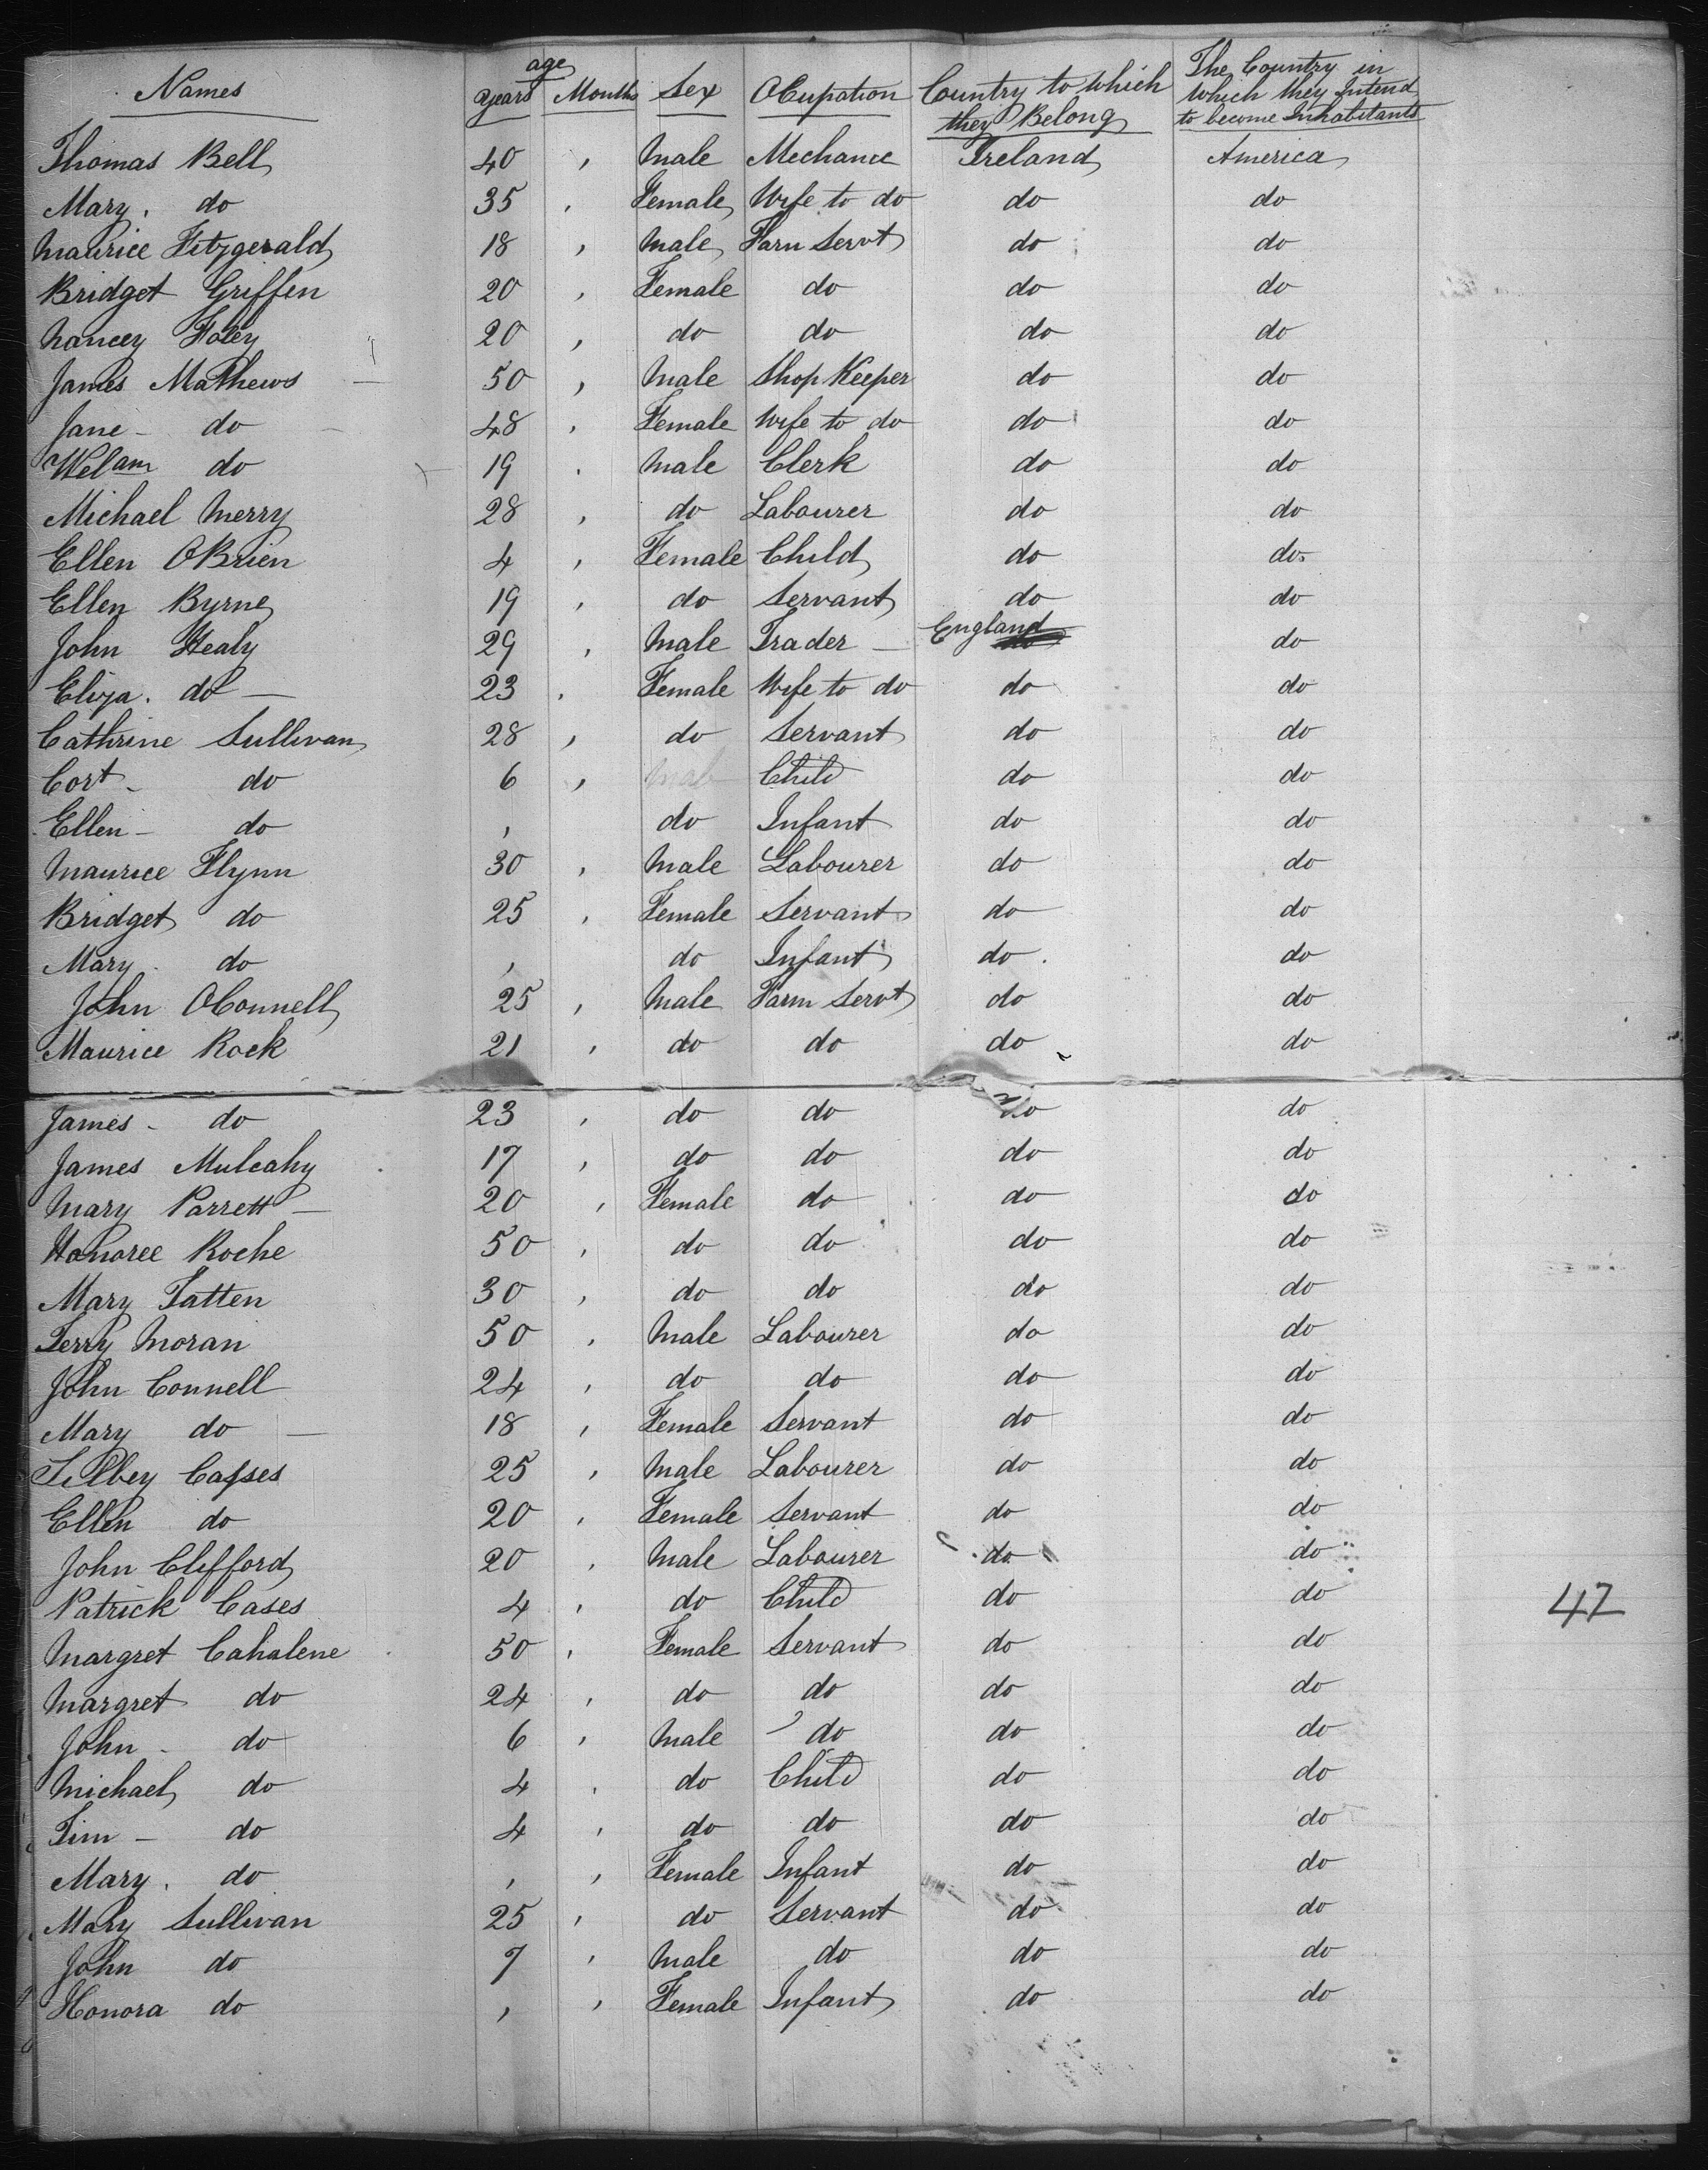 Names age years Months Sex OCupation Country to which they Belong The Country in which they Intend to become Inhabitants
Thomas Bell 40 , Male Mechance Ireland America
Mary. do 35 , Female Wife to do do do
Maurice Fitzgerald 18 , Male Farn Servt do do
Bridget Griffen 20 , Female do do do
Nancey Foley 20 , do do do do
James Mathews — 50 , Male Shop Keeper do do
Jane - do 48 , Female Wife to do do do
Welam do 19 . Male Clerk do do
Michael Merry 28 , do Labourer do do
Ellen OBrien 4 , Female Child do do
Ellen Byrne 19 , do Servant do do
John Healy 29 , Male Trader — England do
Eliza. do — 23 . Female Wife to do do do
Cathrine Sullivan 28 , do Servant do do
Cort - do 6 , Male Child do do
Ellen - do , do Infant do do
Maurice Flynn 30 , Male Labourer do do
Bridget do 25 , Female Servant do do
Mary. do , do Infant do. do
John OConnell 25 , Male Farm Servt do do
Maurice Rock 21 , do do do do
James - do 23 , do do do do
James Mulcahy 17 , do do do do
Mary Parrett — 20 , Female do do do
Honoree Roche 50 , do do do do
Mary Tatten 30 , do do do do
Terry Moran 50 , Male Labourer do do
John Connell 24 , do do do do
Mary do — 18 , Female Servant do do
25 , Male Labourer do do
Ellen do 20 , Female Servant do do
John Clifford 20 , Male Labourer do do
Patrick Cases 4 , do Child do do 47
Margret Cahalene 50 , Female Servant do do
Margret do 24 , do do do do
John - do 6 , Male do do do
Michael do 4 , do Child do do
Tim - do 4 , do do do do
Mary. do , , Female Infant do do
Mary Sullivan 25 , do Servant do do
John do 7 , Male do do do
Honora do , , Female Infant do do